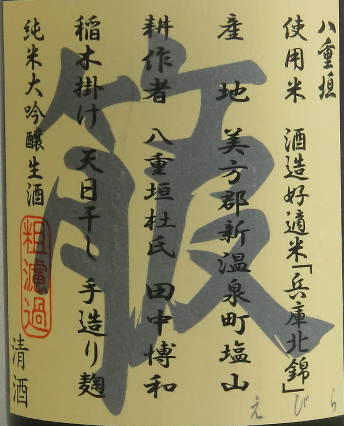 八重垣
使用米 酒造好適米「兵庫北錦」
産地 美方郡新温泉町塩山
耕作者 八重垣杜氏 田中博和
稲木掛け 天日干し 手造り麹
純米大吟醸生酒
粗濾過
清酒
箙
えびら